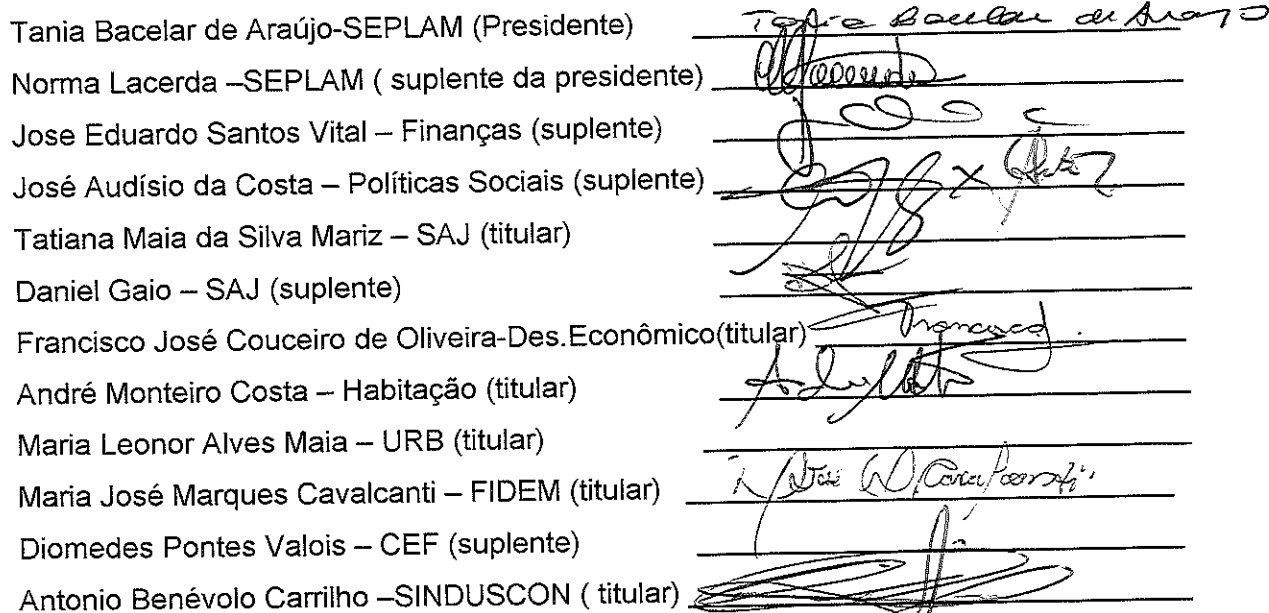 Tania Bacelar de Araújo-SEPLAM (Presidente) Tania Bacelar de Araujo
Norma Lacerda –SEPLAM ( suplente da presidente)
Jose Eduardo Santos Vital – Finanças (suplente)
José Audísio da Costa – Políticas Sociais (suplente)
Tatiana Maia da Silva Mariz – SAJ (titular)
Daniel Gaio – SAJ (suplente)
Francisco José Couceiro de Oliveira-Des.Econômico(titular) Francisco
André Monteiro Costa – Habitação (titular)
Maria Leonor Alves Maia – URB (titular)
Maria José Marques Cavalcanti – FIDEM (titular)
Diomedes Pontes Valois – CEF (suplente)
Antonio Benévolo Carrilho –SINDUSCON ( titular)